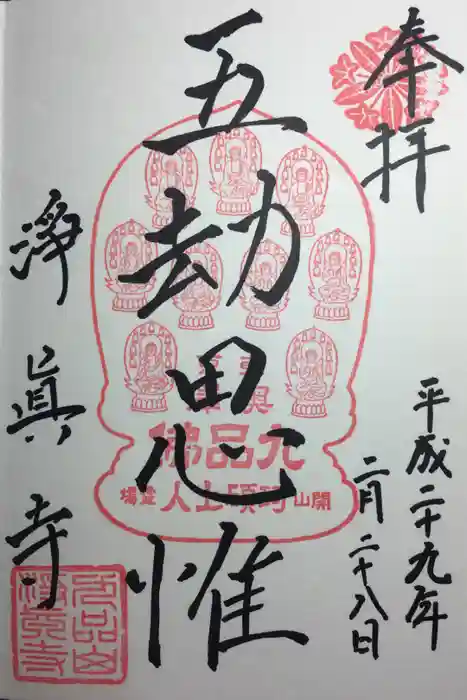 奉拝
平成二十九年
二月二十八日
五劫思惟
九品佛
開山珂碩上人
浄真寺